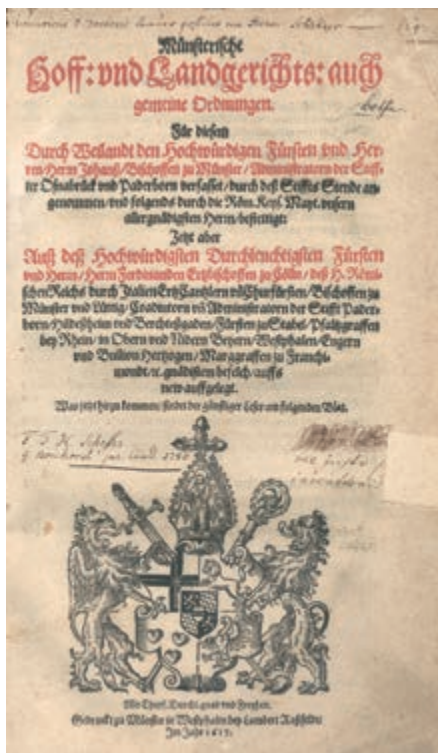 Münsterische
Hoff: vnd Landgerichts: auch
gemeine Ordnungen.
Für diesem
Durch Weilandt den Hochwürdigen Fürsten vnd Her-
ren/Herrn Johanß/Bischoffen zu Münster/Administratorn der Stiff-
ter Oßnabrück vnd Paderborn verfasset/durch deß Stiffts Stende an-
genommen/vnd folgends durch die Röm. Keys. Mayt. vnsern
allergnädigsten Herrn/bestettigt:
Jetzt aber
Auß deß Hochwürdigsten Durchleuchtigsten Fürsten
vnd Herrn/Herrn Ferdinanden Ertzbischoffen zu Cölln/deß H. Römi-
schen Reichs durch Italien Ertz Cantzlern vñ Churfürsten/Bischoffen zu
Münster vnd Lüttig/Coadiutorn vñ Administratorn der Stifft Pader-
born/Hildeßheim vnd Berchteßgaden/Fürsten zu Stabel/Pfaltzgraffen
bey Rhein/in Obern vnd Nidern Beyern/Westphalen/Engern
vnd Bullion Hertzogen/Marggraffen zu Franchi-
mondt/rc. gnädistem befelch/auffs
new auffgelegt.
Was jetzt hinzu kommen/findet der günstiger Leser am folgenden Blat.
Mit Churf. Durchl. gnad vnd Freyheit.
Gedruckt zu Münster in Westphalen bey Lambert Raßfeldt/
Im Jahr 1617.